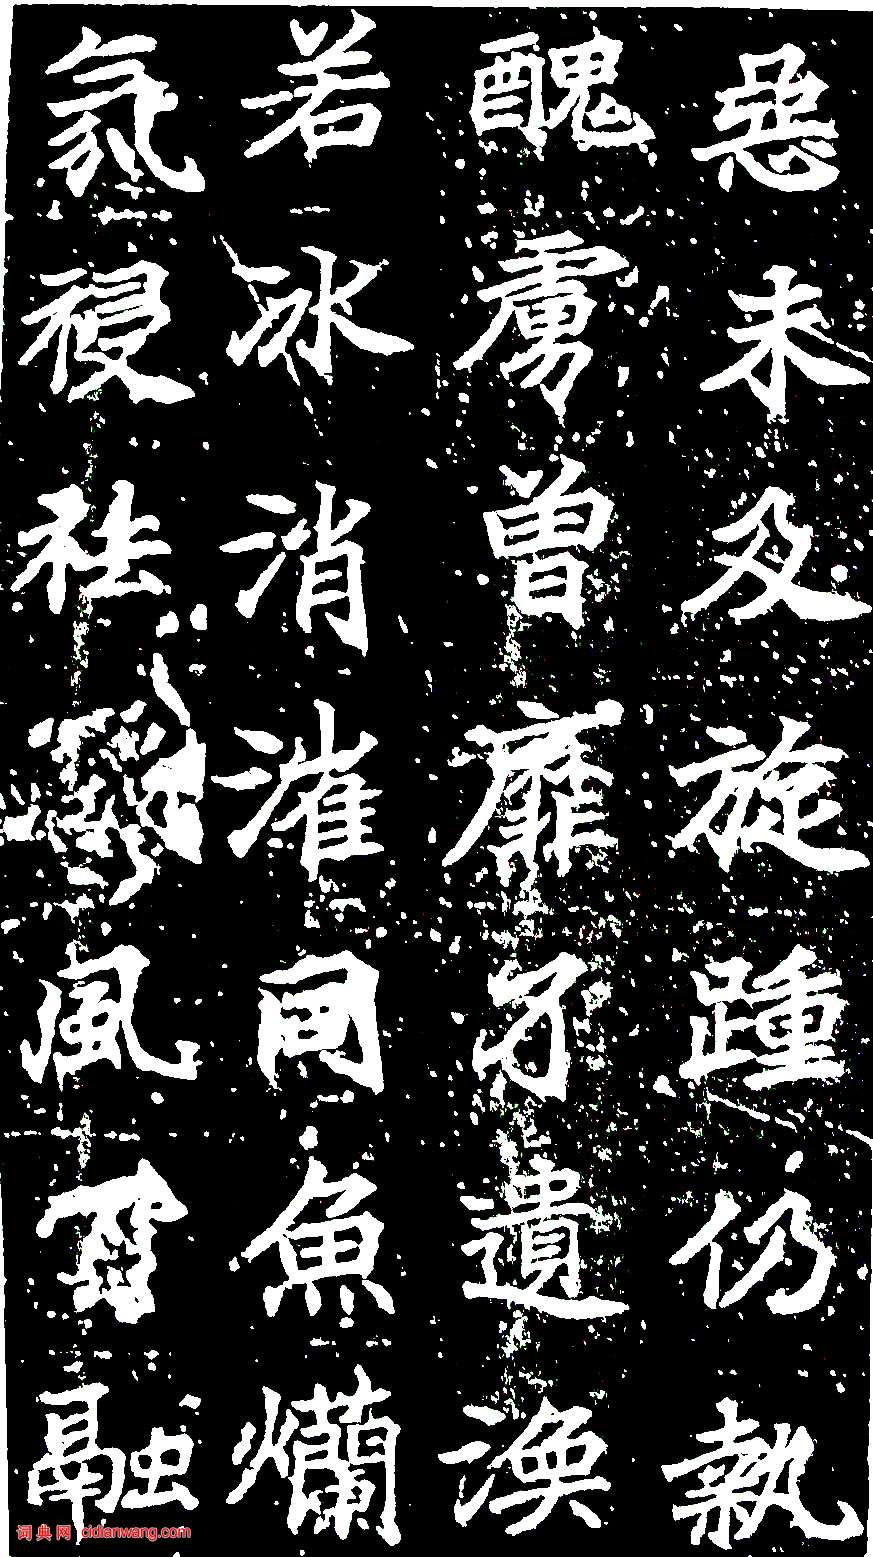 惡未及旋踵仍執
醜虜曾靡孑遺渙
若冰消漼同魚爛
氛祲祛風融
词典网 cidianwang.com